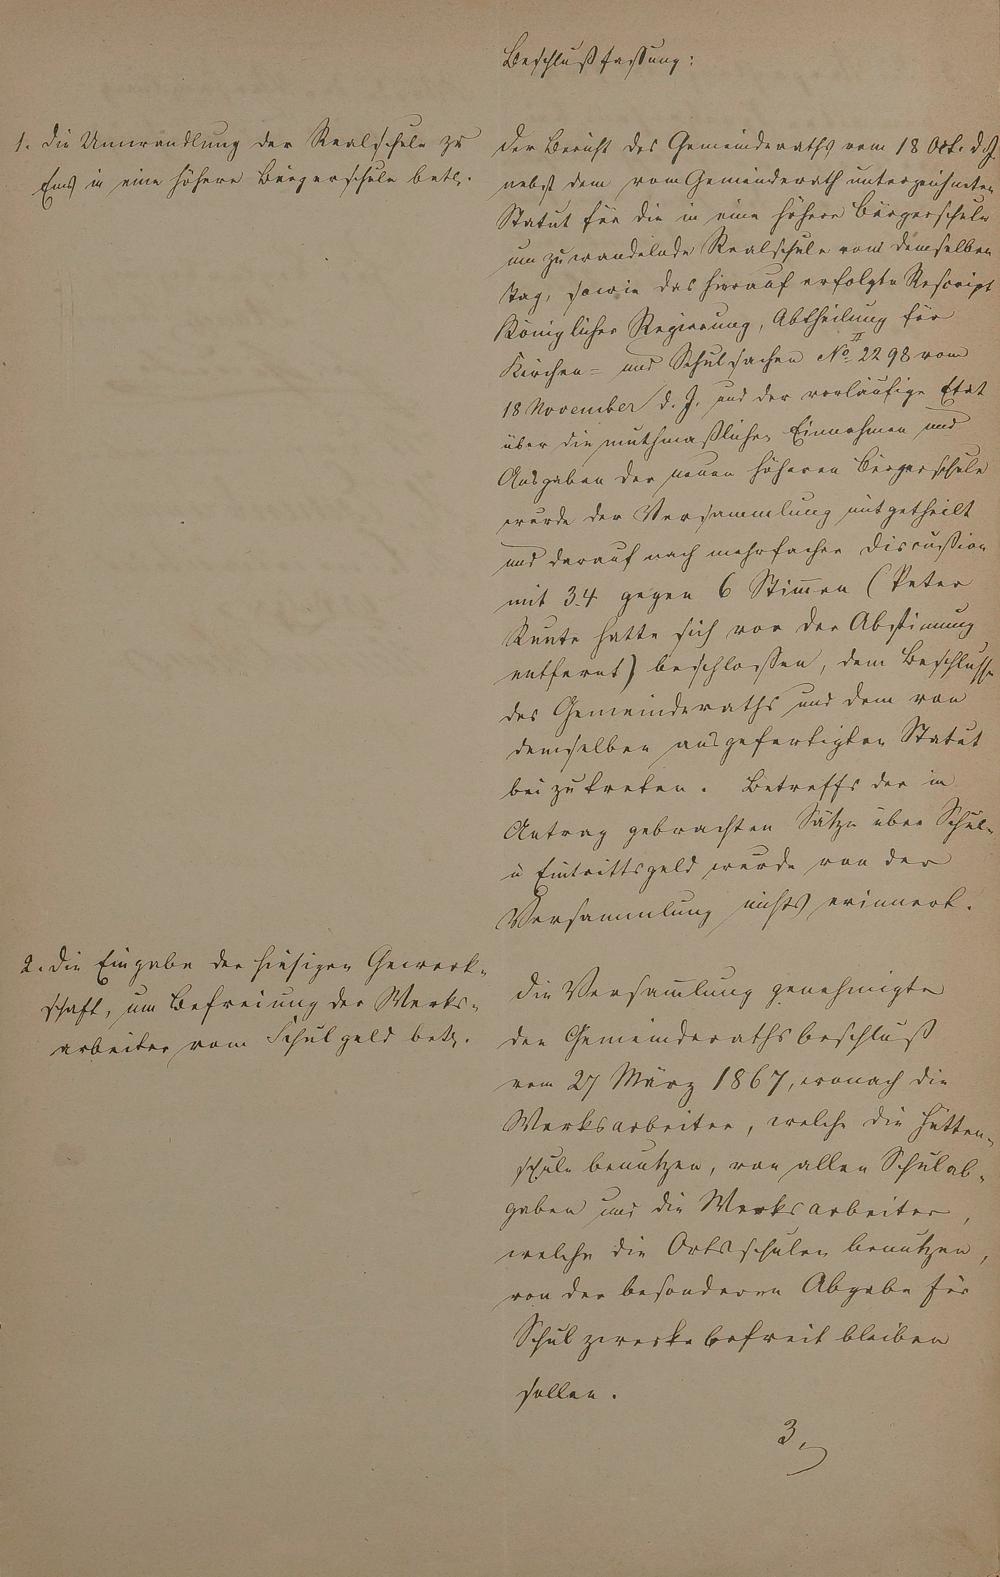 Beschlußfassung:
1. Die Umwandlung der Realschule zu
Ems in eine höhere Bürgerschule betr.
Der Bericht des Gemeinderaths vom 18 Okt. d. J.
nebst dem vom Gemeinderath unterzeichneten
Statut für die in eine höhere Bürgerschule
umzuwandelnde Realschule vom demselben
Tag, sowie das hierauf erfolgte Rescript
Königlicher Regierung, Abtheilung für
Kirchen= und Schulsachen No II 2298 vom
18 November d. J. und der vorläufige Etat
über die muthmaßlichen Einnahmen und
Ausgaben der neuen höheren Bürgerschule
wurde der Versammlung mitgetheilt
und darauf nach mehrfacher Discussion
mit 34 gegen 6 Stimmen (Peter
hatte sich vor der Abstimmung
entfernt) beschlossen, dem Beschlusse
des Gemeinderaths und dem von
demselben ausgefertigten Statut
beizutreten. Betreffs der in
Antrag gebrachten Sätze über Schul-
u Eintrittsgeld wurde von der
Versammlung nichts erinnert.
2. Die Eingabe der hiesigen Gewerk-
schaft, um Befreiung der Werks-
arbeiter vom Schulgeld betr.
Die Versammlung genehmigte
den Gemeinderathsbeschluß
vom 27 März 1867, wonach die
Werksarbeiter, welche die Hütten-
schule benutzen, von allen Schulab-
gaben und die Werksarbeiter,
welche die Ortsschulen benutzen,
von der besonderen Abgabe für
Schulzwecke befreit bleiben
sollen.
3,